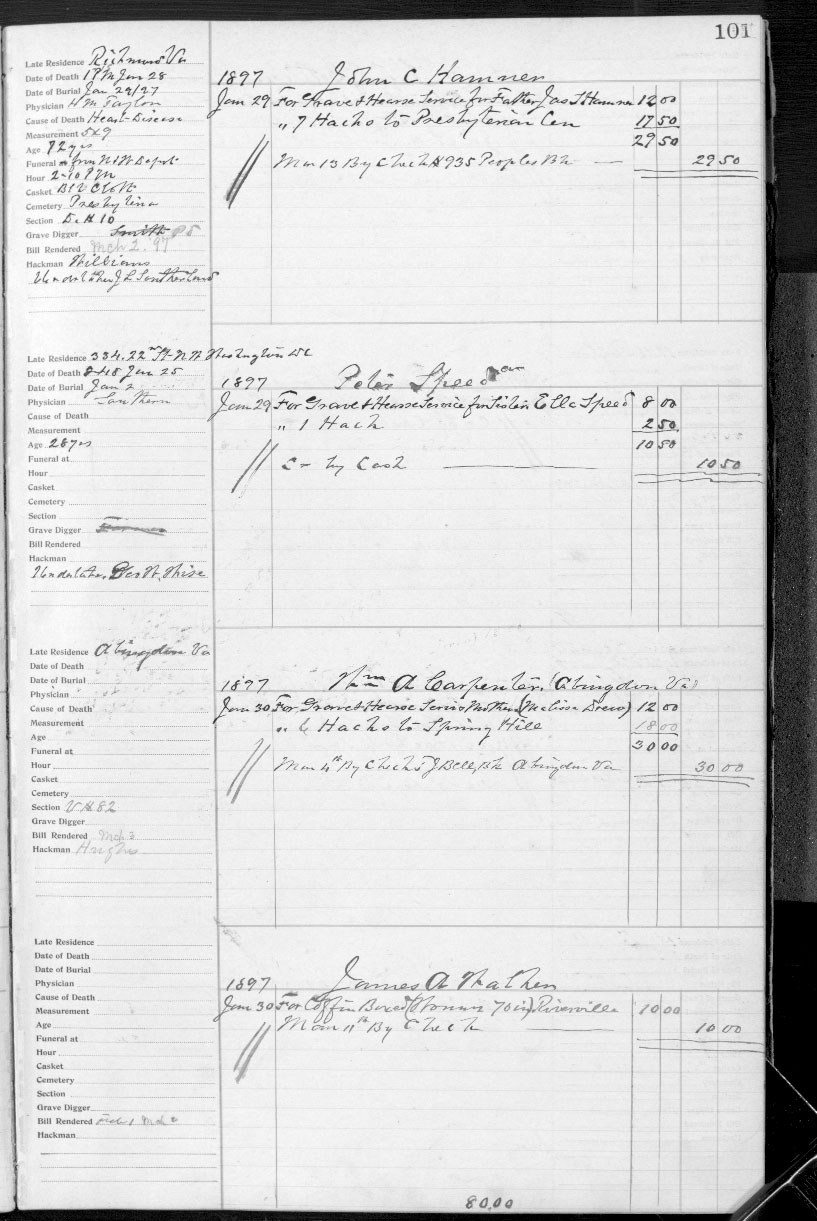 101
Late Residence Richmond Va
Date of Death 1 PM Jan 28
Date of Burial Jan 29/97
Physician H M Taylor
Cause of Death Heart Disease
Measurement 5x9
Age 72 yrs
Funeral at from N&W Depot
Hour 2-10 PM
Casket Blk Cloth
Cemetery Presbyterian
Section D. # 10
Grave Digger Smith P S
Bill Rendered Mch 2. 97
Hackman Williams
Undertaker J L Southerland
1897 John C Hamner
Jan 29 For Grave & Hearse Service for Father Jas S Hamner 12 00
" 7 Hacks to Presbyterian Cem 17 50
29 50
Mar 13 By Check # 935 Peoples Bk — 29 50
Late Residence 334. 22nd St N.W Washington DC
Date of Death 8 Jan 25
Date of Burial Jan 2
Physician Southern
Cause of Death
Measurement
Age 28 yrs
Funeral at
Hour
Casket
Cemetery
Section
Grave Digger
Bill Rendered
Hackman
Undertaker. Geo W. Wise
1897 Peter Speed
Jan 29 For Grave & Hearse Service for Sister Ella Speed 8 00
" 1 Hack 2 50
10 50
Cr by Cash 10 50
Late Residence Abingdon Va
Date of Death
Date of Burial
Physician
Cause of Death
Measurement
Age
Funeral at
Hour
Casket
Cemetery
Section V # 82
Grave Digger
Bill Rendered Mch 3
Hackman Hughes
1897 Wm A Carpenter (Abingdon Va)
Jan 30 For Grave & Hearse Service Mother (Malissa Drew) 12 00
" 6 Hacks to Spring Hill 18 00
30 00
Mar 4th By Check J Bell, Bk Abingdon Va 30 00
Late Residence
Date of Death
Date of Burial
Physician
Cause of Death
Measurement
Age
Funeral at
Hour
Casket
Cemetery
Section
Grave Digger
Bill Rendered Feb 1 Mch 2
Hackman
1897 James A Walker
Jan 30 For Coffin Boxed (Woman 70 in) Riverville 10 00
Mar 11th By Check 10 00
80,00